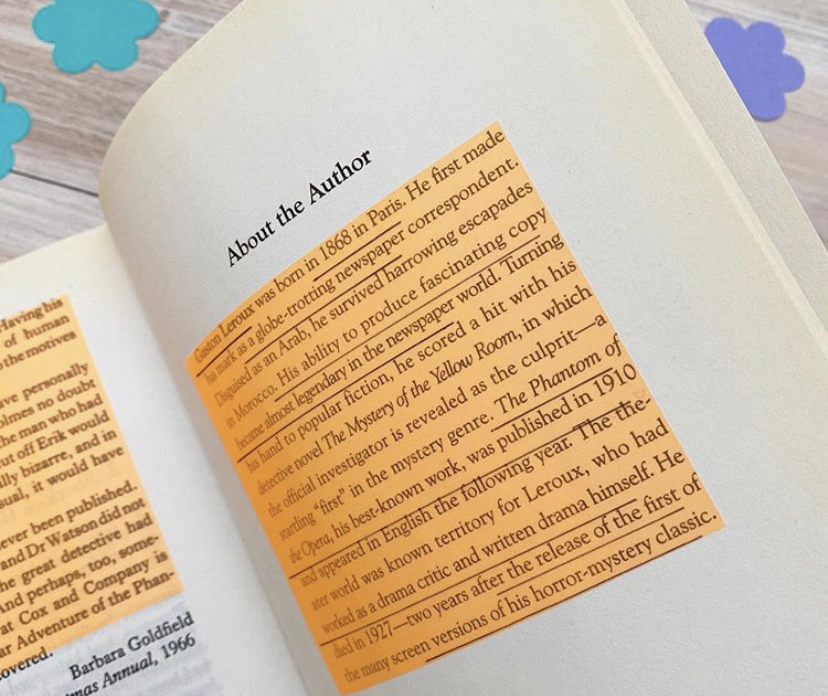 Having his
of human
o the motives
ave personally
olmes no doubt
the man who had
ut off Erik would
lly bizarre, and in
sual, it would have
ever been published.
and Dr Watson did not
he great detective had
And perhaps, too, some-
at Cox and Company is
ar Adventure of the Phan-
overed.
Barbara Goldfield
tmas Annual, 1966
About the Author
Gaston Leroux was born in 1868 in Paris. He first made
his mark as a globe-trotting newspaper correspondent.
Disguised as an Arab, he survived harrowing escapades
in Morocco. His ability to produce fascinating copy
became almost legendary in the newspaper world. Turning
his hand to popular fiction, he scored a hit with his
detective novel The Mystery of the Yellow Room, in which
the official investigator is revealed as the culprit—a
startling “first” in the mystery genre. The Phantom of
the Opera, his best-known work, was published in 1910
and appeared in English the following year. The the-
ater world was known territory for Leroux, who had
worked as a drama critic and written drama himself. He
died in 1927—two years after the release of the first of
the many screen versions of his horror-mystery classic.